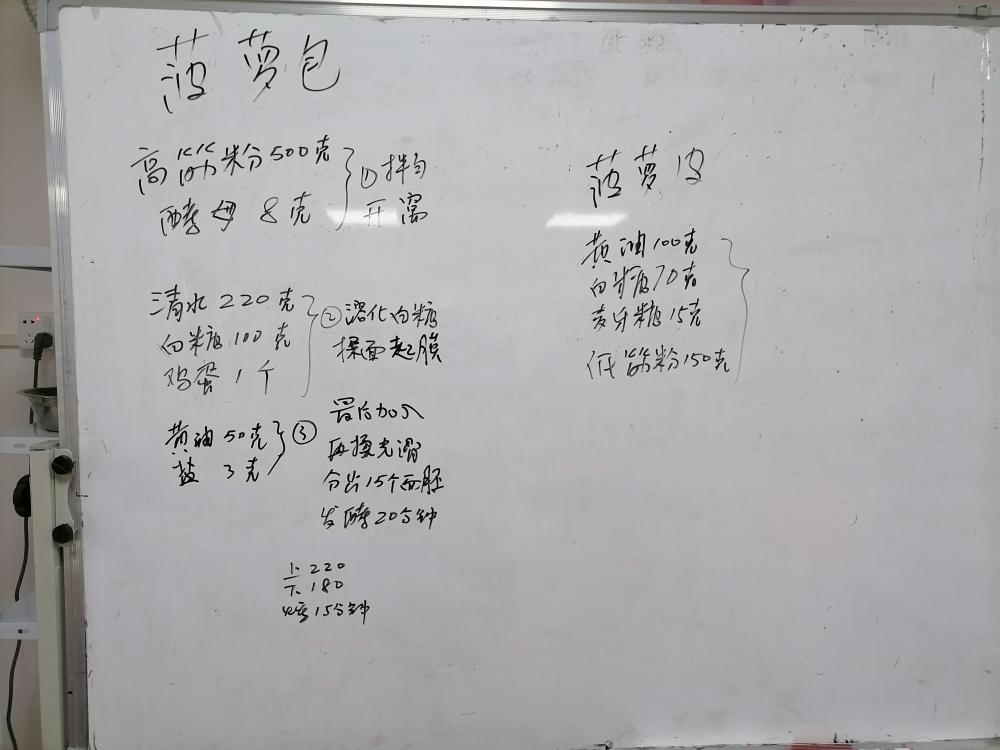 菠萝包
高筋粉500克
酵母 8克
①拌匀
开窝
清水220克
白糖100克
鸡蛋1个
②溶化白糖
揉面起膜
黄油50克
盐 3克
③
最后加入
再揉光滑
分出15个面胚
发酵20分钟
上220
下180
烤15分钟
菠萝皮
黄油100克
白糖70克
麦牙糖15克
低筋粉150克